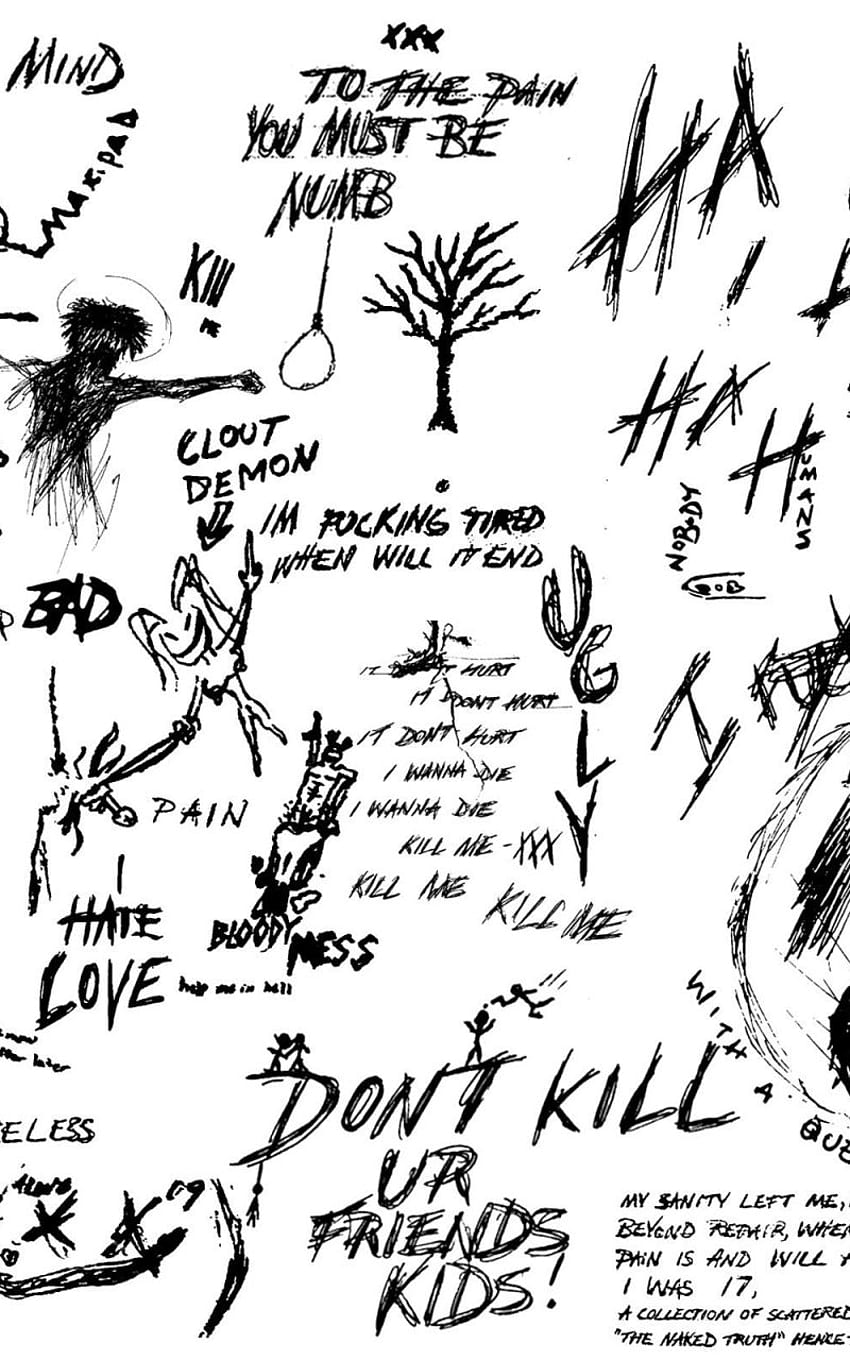 MIND
XXX
TO THE PAIN
YOU MUST BE
NUMB
MAXiPAD
HA
KIll
ME
HA
HUMANS
NOBODY
CLOUT
DEMON
IM FUCKING TIRED
WHEN WILL IT END
BAD
UGLY
IT DONT HURT
IT DONT HURT
IT DONT HURT
I WANNA DIE
I WANNA DIE
KILL ME - XXX
KILL ME
KILL ME
PAIN
I
HATE
LOVE
BLOODY
MESS
help me in hell
later
WITH A
DONT KILL
UR
FRIENDS
KIDS!
ELESS
MY SANITY LEFT ME,
BEYOND REPAIR, WHEN
PAIN IS AND WILL
I WAS 17,
A COLLECTION OF SCATTERED
"THE NAKED TRUTH" HENCE